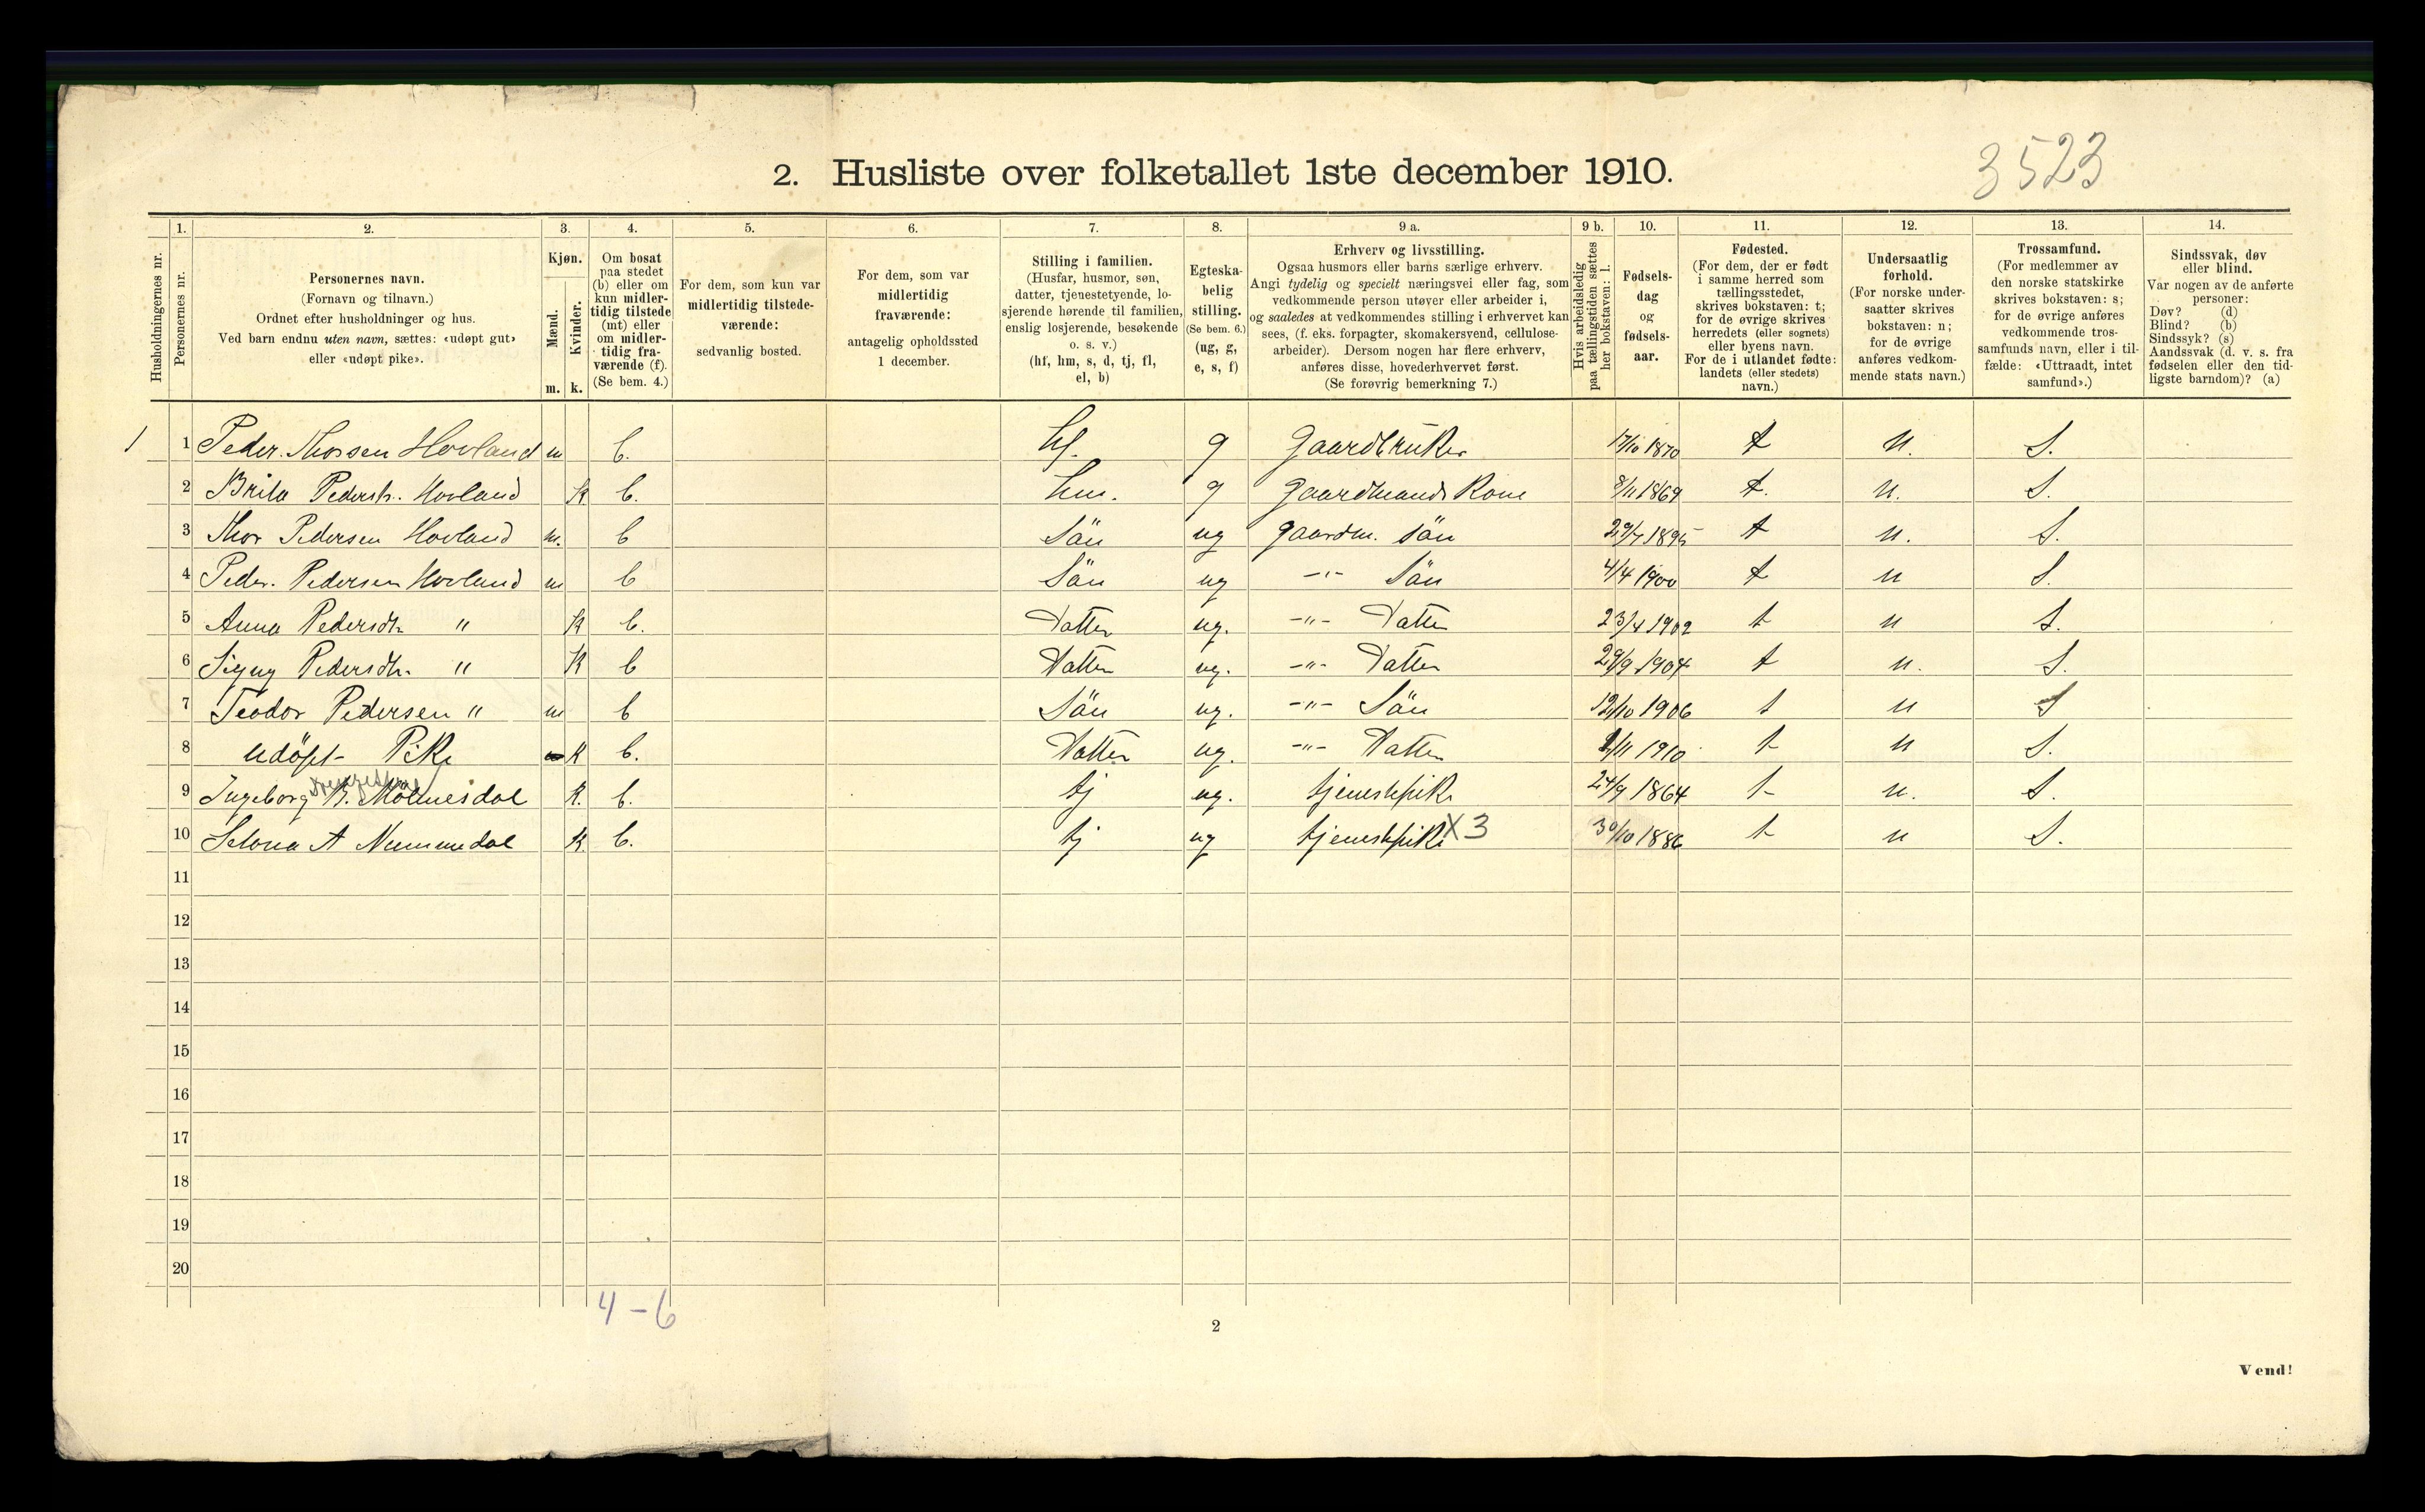 3523
2. Husliste over folketallet 1ste december 1910.
Husholdningernes nr.
1. Personernes nr.
2. Personernes navn.
(Fornavn og tilnavn.)
Ordnet efter husholdninger og hus.
Ved barn endnu uten navn, sættes: «udøpt gut»
eller «udøpt pike».
3. Kjøn.
Mænd. m.
Kvinder. k.
4. Om bosat
paa stedet
(b) eller om
kun midler-
tidig tilstede
(mt) eller
om midler-
tidig fra-
værende (f).
(Se bem. 4.)
5. For dem, som kun var
midlertidig tilstede-
værende:
sedvanlig bosted.
6. For dem, som var
midlertidig
fraværende:
antagelig opholdssted
1 december.
7. Stilling i familien.
(Husfar, husmor, søn,
datter, tjenestetyende, lo-
sjerende hørende til familien,
enslig losjerende, besøkende
o. s. v.)
(hf, hm, s, d, tj, fl,
el, b)
8. Egteska-
belig
stilling.
(Se bem. 6.)
(ug, g,
e, s, f)
9 a. Erhverv og livsstilling.
Ogsaa husmors eller barns særlige erhverv.
Angi tydelig og specielt næringsvei eller fag, som
vedkommende person utøver eller arbeider i,
og saaledes at vedkommendes stilling i erhvervet kan
sees, (f. eks. forpagter, skomakersvend, cellulose-
arbeider). Dersom nogen har flere erhverv,
anføres disse, hovederhvervet først.
(Se forøvrig bemerkning 7.)
9 b. Hvis arbeidsledig
paa tællingstiden sættes
her bokstaven: l.
10. Fødsels-
dag
og
fødsels-
aar.
11. Fødested.
(For dem, der er født
i samme herred som
tællingsstedet,
skrives bokstaven: t;
for de øvrige skrives
herredets (eller sognets)
eller byens navn.
For de i utlandet fødte:
landets (eller stedets)
navn.)
12. Undersaatlig
forhold.
(For norske under-
saatter skrives
bokstaven: n;
for de øvrige
anføres vedkom-
mende stats navn.)
13. Trossamfund.
(For medlemmer av
den norske statskirke
skrives bokstaven: s;
for de øvrige anføres
vedkommende tros-
samfunds navn, eller i til-
fælde: «Uttraadt, intet
samfund».)
14. Sindssvak, døv
eller blind.
Var nogen av de anførte
personer:
Døv? (d)
Blind? (b)
Sindssyk? (s)
Aandssvak (d. v. s. fra
fødselen eller den tid-
ligste barndom)? (a)
1 1 Peder. Thorsen Hovland m b. hf. g Gaardbruker 17/10 1870 t n. S.
2 Brita Pedersdr. Hovland K b. hm. g Gaardmands Kone 8/11 1869 t. n. S.
3 Thor Pedersen Hovland m. b Sön ug gaardm. Sön 29/7 1895 t n. S.
4 Peder. Pedersen Hovland m b Sön ug -"- Sön 4/4 1900 t n S.
5 Anna Pedersdtr " K b. Datter ug. -"- Datter 23/4 1902 t n S.
6 Signy Pedersdtr. " K b Datter ug. -"- Datter 29/9 1904 t n. S.
7 Teodor Pedersen " m b Sön ug. -"- Sön 12/10 1906 t n S
8 udöpt Pike K b. Datter ug. -"- Datter 1/11 1910 t n S.
9 Ingeborg B. Mölmesdal K. b. tj ug. tjenestepike 24/9 1864 t n. S.
10 A Nummedal K b. tj ug tjenestepike X 3 30/10 1886 t n S.
11
12
13
14
15
16
17
18
19
20
4 - 6
2
Vend!